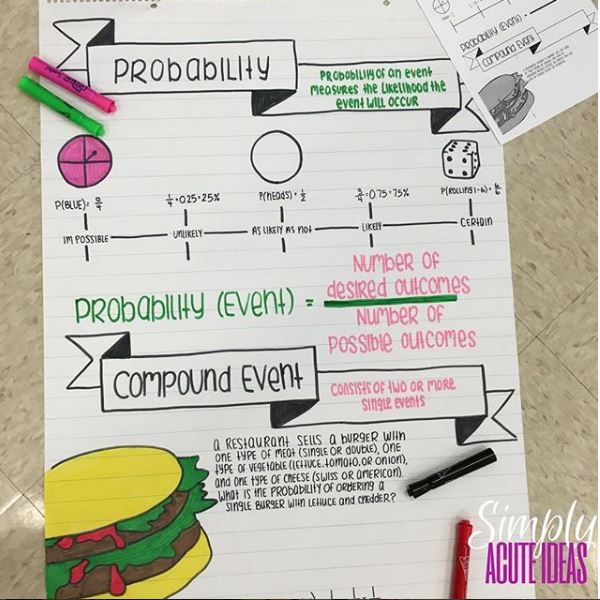 PRObabiliTY
PRObabiliTY OF an eVenT
measures THE LIKELIHOOD THE
eVenT WILL OCCUR
P(BLUE)= 0/4
1/4=0.25=25%
P(Heads)= 1/2
3/4=0.75=75%
P(ROLLING 1-6)= 6/6
IMPOSSIBLE
UNLIKELY
AS LIKELY AS NOT
LIKELY
CERTAIN
Number of
desired outcomes
PRObabiliTY (EVenT) =
Number of
Possible outcomes
Compound EVenT
Consists of two or more
single events
a Restaurant sells a burger with
one type of meat (single or double), one
type of vegetable (lettuce, tomato, or onion),
and one type of cheese (swiss or american).
What is the probability of ordering a
single burger with lettuce and chedder?
PRObabiliTY (EVenT) =
Compound EVenT
Simply
ACUTE IDEAS